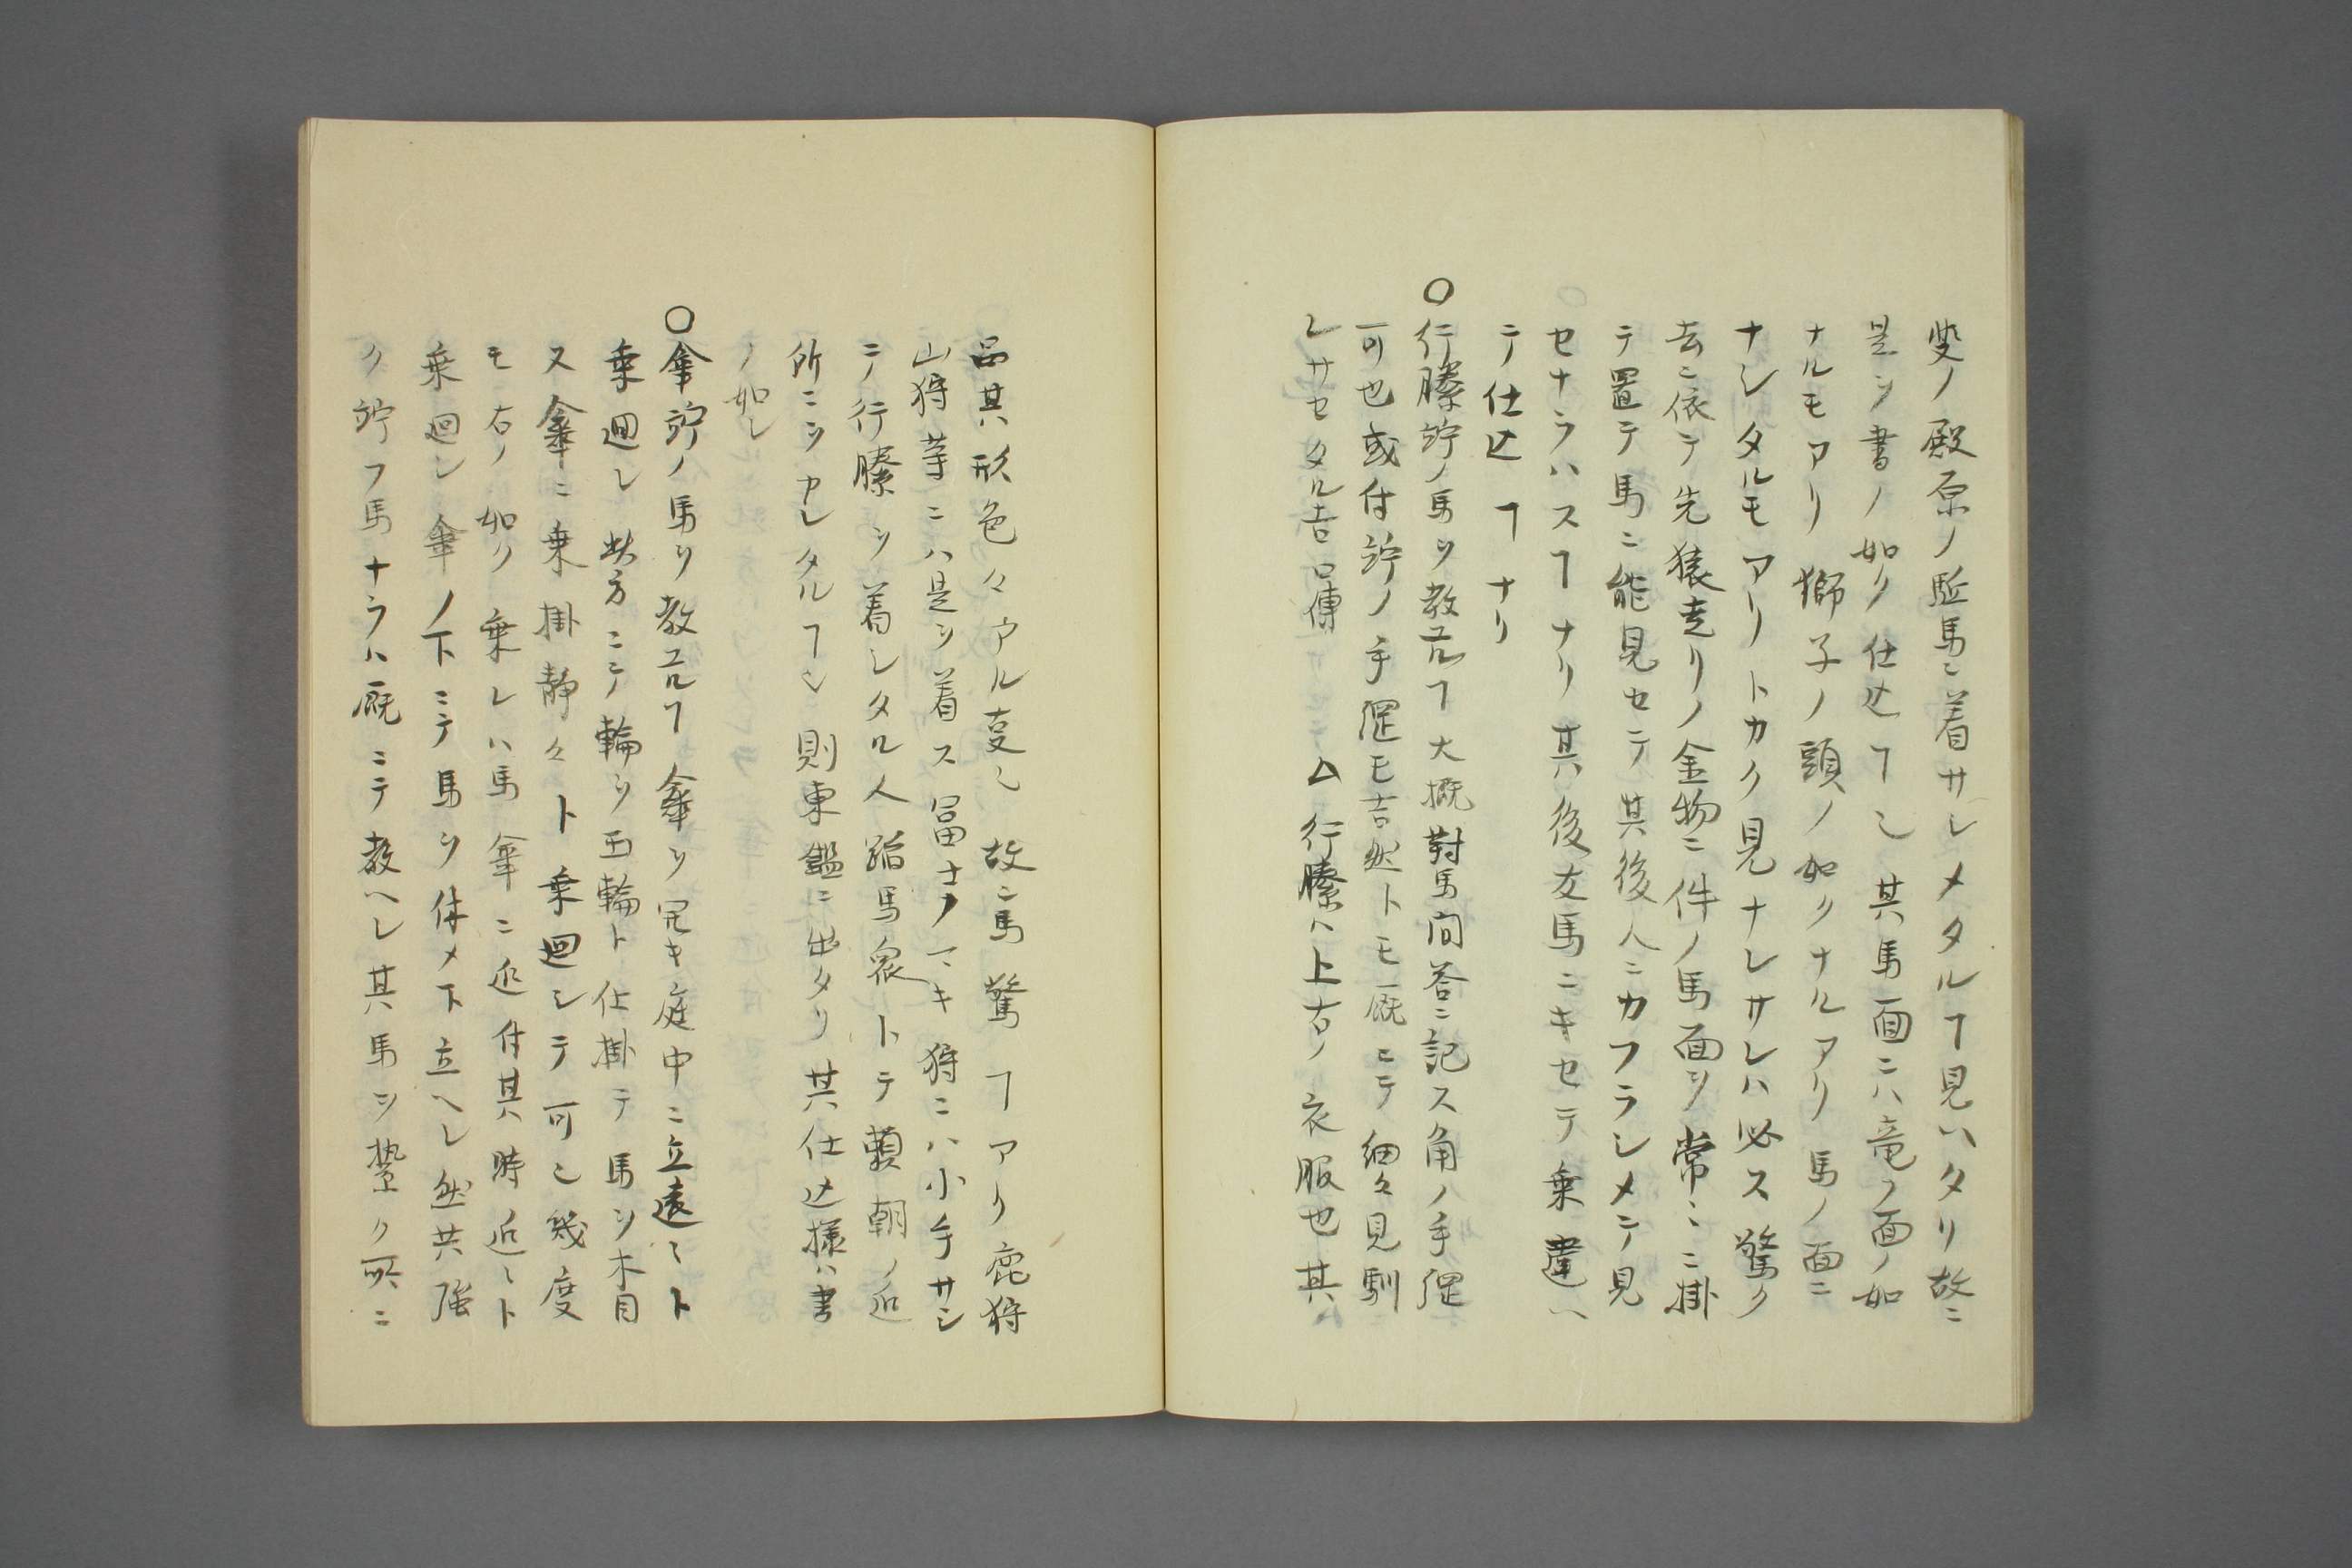 叟ノ殿原ノ駈馬ニ着サレメタルヿ見ハタリ故ニ
是ヲ書ノ如ク仕込ヿ也其馬面ニハ竜ノ面ノ如
ナルモアリ獅子ノ頭ノ如クナルアリ馬ノ面ニ
ナシタルモアリトカク見ナレサレハ必ス驚ク
去ニ依テ先猿走リノ金物ニ件ノ馬面ヲ常々ニ掛
テ置テ馬ニ能見セテ其後人ニカフラシメテ見
セナラハスヿナリ其後友馬ニキセテ乗違ヘ
テ仕込ヿナリ
〇行縢䛴ノ馬ヲ教ユルヿ大概對馬問答ニ記ス角ノ手綱
可也或付䛴ノ手綱モ吉然トモ厩ニテ細々見馴
レサセタル吉口傳 △行縢ハ上古ノ衣服也其
品其形色々アル叓也故ニ馬驚ヿアリ鹿狩
山狩等ニハ是ヲ着ス冨士ノマキ狩ニハ小手サシ
ニテ行縢ヲ着シタル人踏馬衆トテ頼朝ノ近
所ニツカレタルヿ也則東鑑ニ出タリ其仕込様ハ書
ノ如シ
〇傘䛴ノ馬ヲ教ユルヿ傘ヲ開キ庭中ニ立遠々ト
乗廻し此方ニテ輪ヲ五輪ト仕掛テ馬ヲ木目
ス傘ニ乗掛静々ト乗廻シテ可也幾度
モ右ノ如ク乗レハ馬傘ニ近付其時近々ト
乗廻シ傘ノ下ニテ馬ヲ休メ下立ヘシ然共強
ク䛴フ馬ナラハ厩ニテ教ヘシ其馬ヲ繋ク所ニ